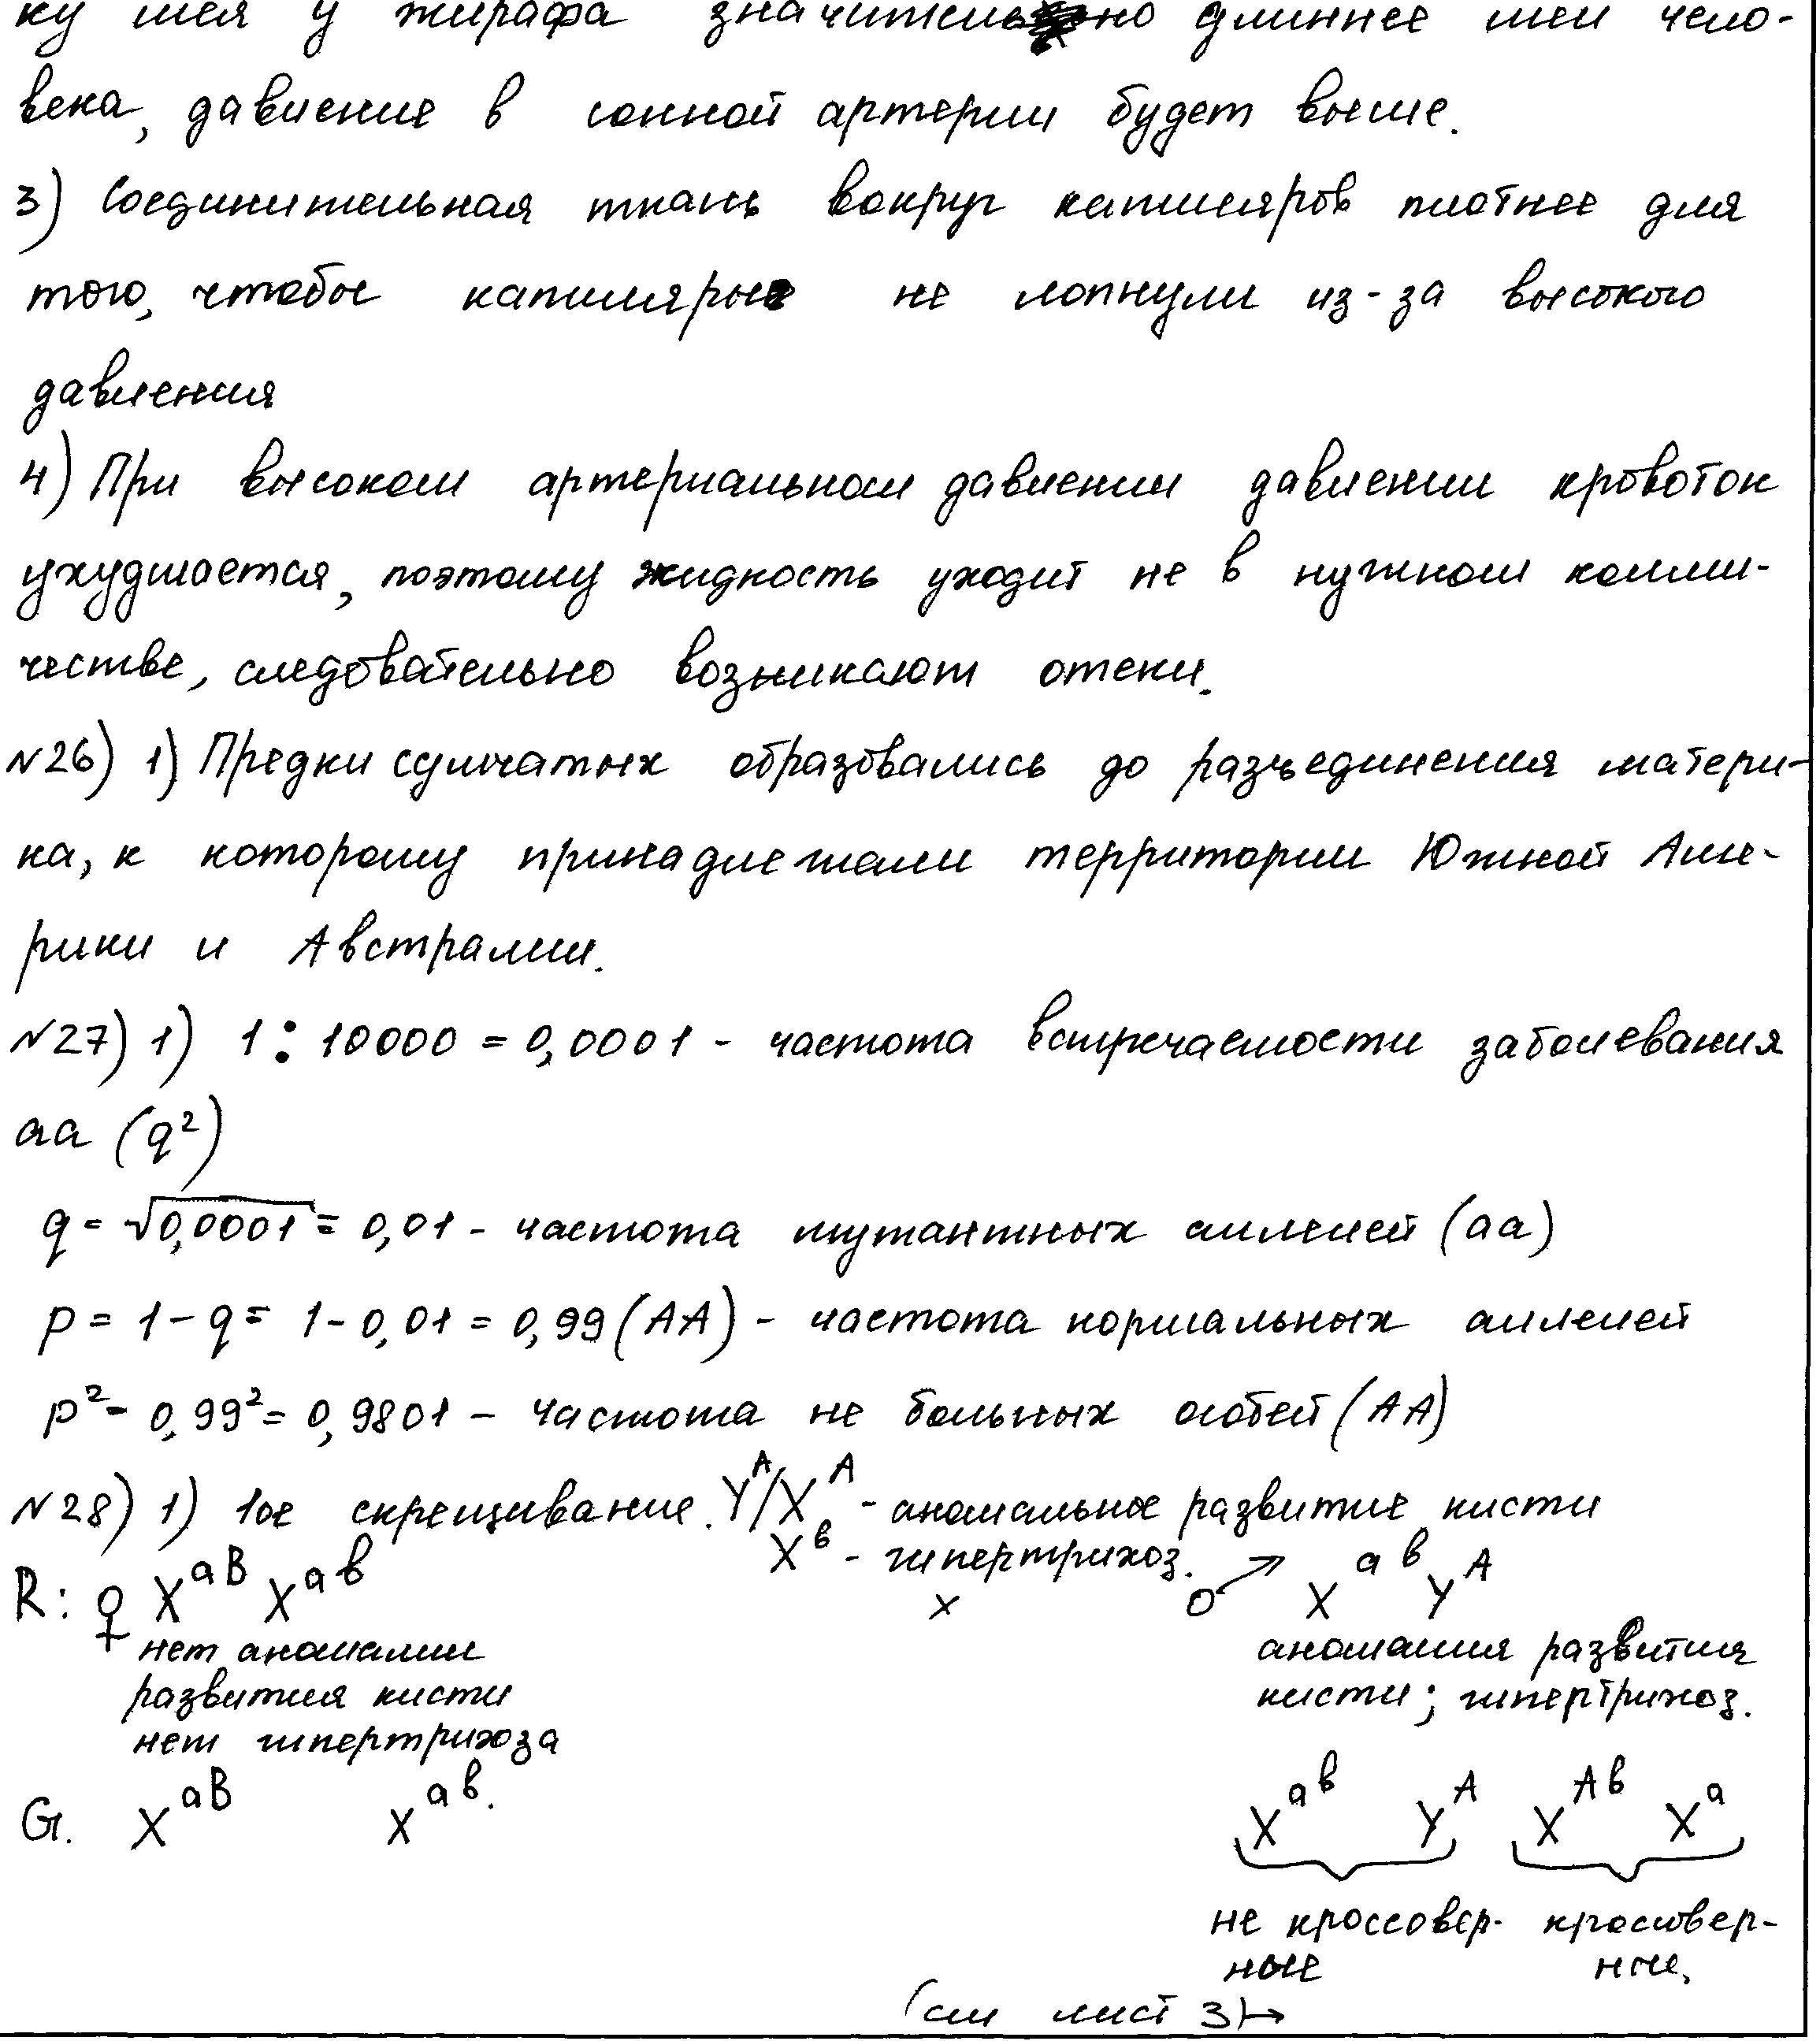 ку шея у жирафа значительно длиннее шеи чело-
века, давление в сонной артерии будет выше.
3) Соединительная ткань вокруг капиляров плотнее для
того, чтобы капиляры не лопнули из-за высокого
давления
4) При высоком артериальном давлении давлении кровоток
ухудшается, поэтому жидкость уходит не в нужном колли-
честве, следовательно возникают отеки.
№26) 1) Предки сумчатых образовались до разъединения матери-
ка, к которому принадлежали территории Южной Аме-
рики и Австралии.
№27) 1) 1 : 10000 = 0,0001 - частота встречаемости заболевания
aa (q²)
q = √0,0001 = 0,01 - частота мутантных аллелей (aa)
p = 1 - q = 1 - 0,01 = 0,99 (AA) - частота нормальных аллелей
p² - 0,99² = 0,9801 - частота не больных особей (AA)
№28) 1) 1ое скрещивание. Yᴬ/Xᴬ - аномальное развитие кисти
Xᵇ - гипертрихоз.
R: ♀ XᵃᴮXᵃᵇ x ♂ XᵃᵇYᴬ
нет аномалии аномалия развития
развития кисти кисти; гипертрихоз.
нет гипертрихоза
G. Xᵃᴮ Xᵃᵇ. Xᵃᵇ Yᴬ Xᴬᵇ Xᵃ
не кроссовер- кроссовер-
ные ные.
(см лист 3) →